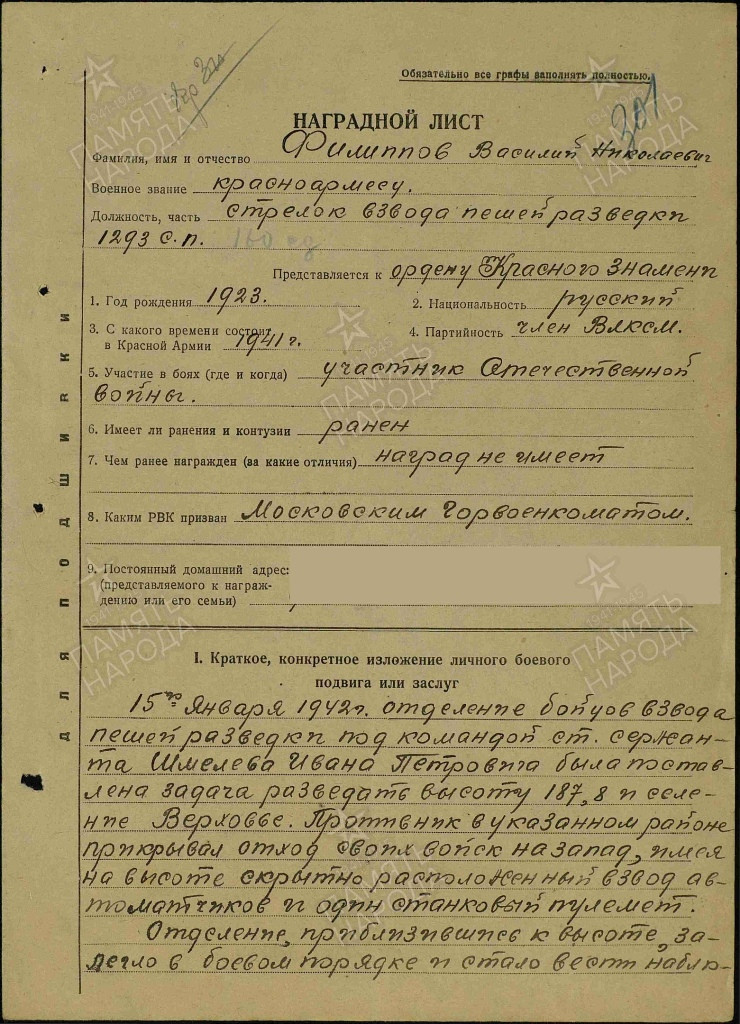 Обязательно все графы заполнять полностью.
307
НАГРАДНОЙ ЛИСТ
Фамилия, имя и отчество Филиппов Василий Николаевич
Военное звание красноармеец.
Должность, часть стрелок взвода пешей разведки
1293 с.п. 160 сд
Представляется к ордену Красного Знамени
1. Год рождения 1923. 2. Национальность русский
3. С какого времени состоит
в Красной Армии 1941 г. 4. Партийность член ВЛКСМ.
5. Участие в боях (где и когда) участник Отечественной
войны.
6. Имеет ли ранения и контузии ранен
7. Чем ранее награжден (за какие отличия) наград не имеет
8. Каким РВК призван Московским Горвоенкоматом.
9. Постоянный домашний адрес:
(представляемого к награж-
дению или его семьи)
ДЛЯ ПОДШИВКИ
I. Краткое, конкретное изложение личного боевого
подвига или заслуг
15го Января 1942г. отделение бойцов взвода
пешей разведки под командой ст. сержан-
та Шмелева Ивана Петровича была постав-
лена задача разведать высоту 187,8 и селе-
ние Верховье. Противник в указанном районе
прикрывал отход своих войск на запад, имея
на высоте скрытно расположенный взвод ав-
томатчиков и один станковый пулемет.
Отделение, приблизившись к высоте, за-
легло в боевом порядке и стало вести наблю-
1941-1945
ПАМЯТЬ
НАРОДА